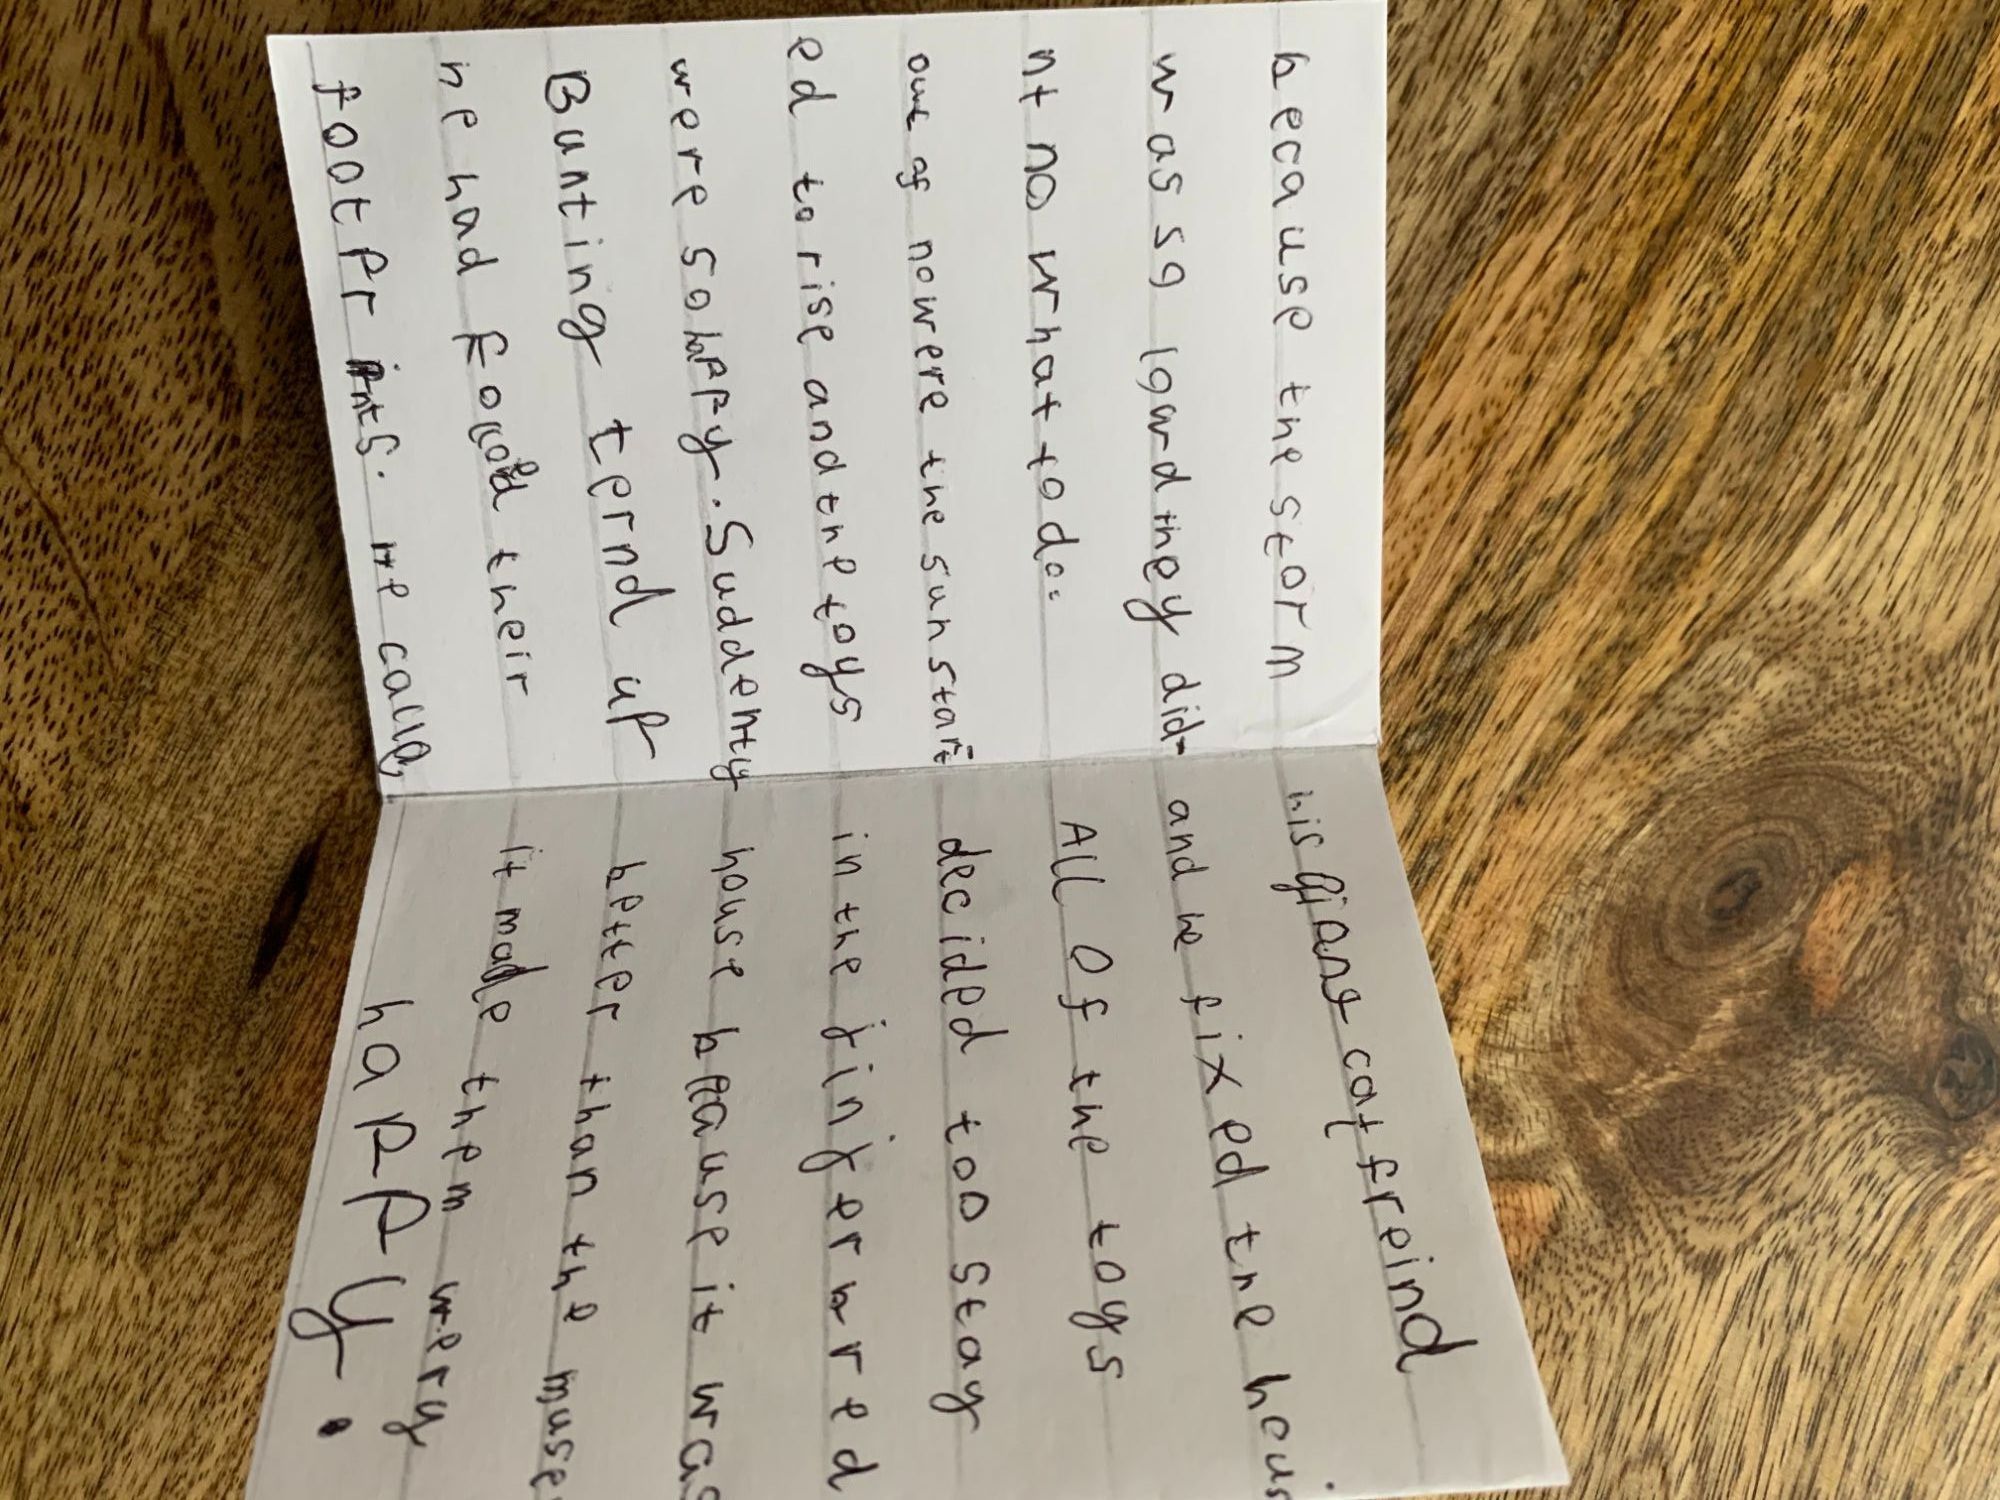 because the storm
was so loud they did-
nt no what to do.
out of nowere the sun start
ed to rise and the toys
were so happy. Suddenly
Bunting ternd up
he had folood their
footprints. He calle
his giant cat freind
and he fixed the hous
All of the toys
decided too stay
in the jinjerbred
house because it was
better than the muse
it made them very
happy.